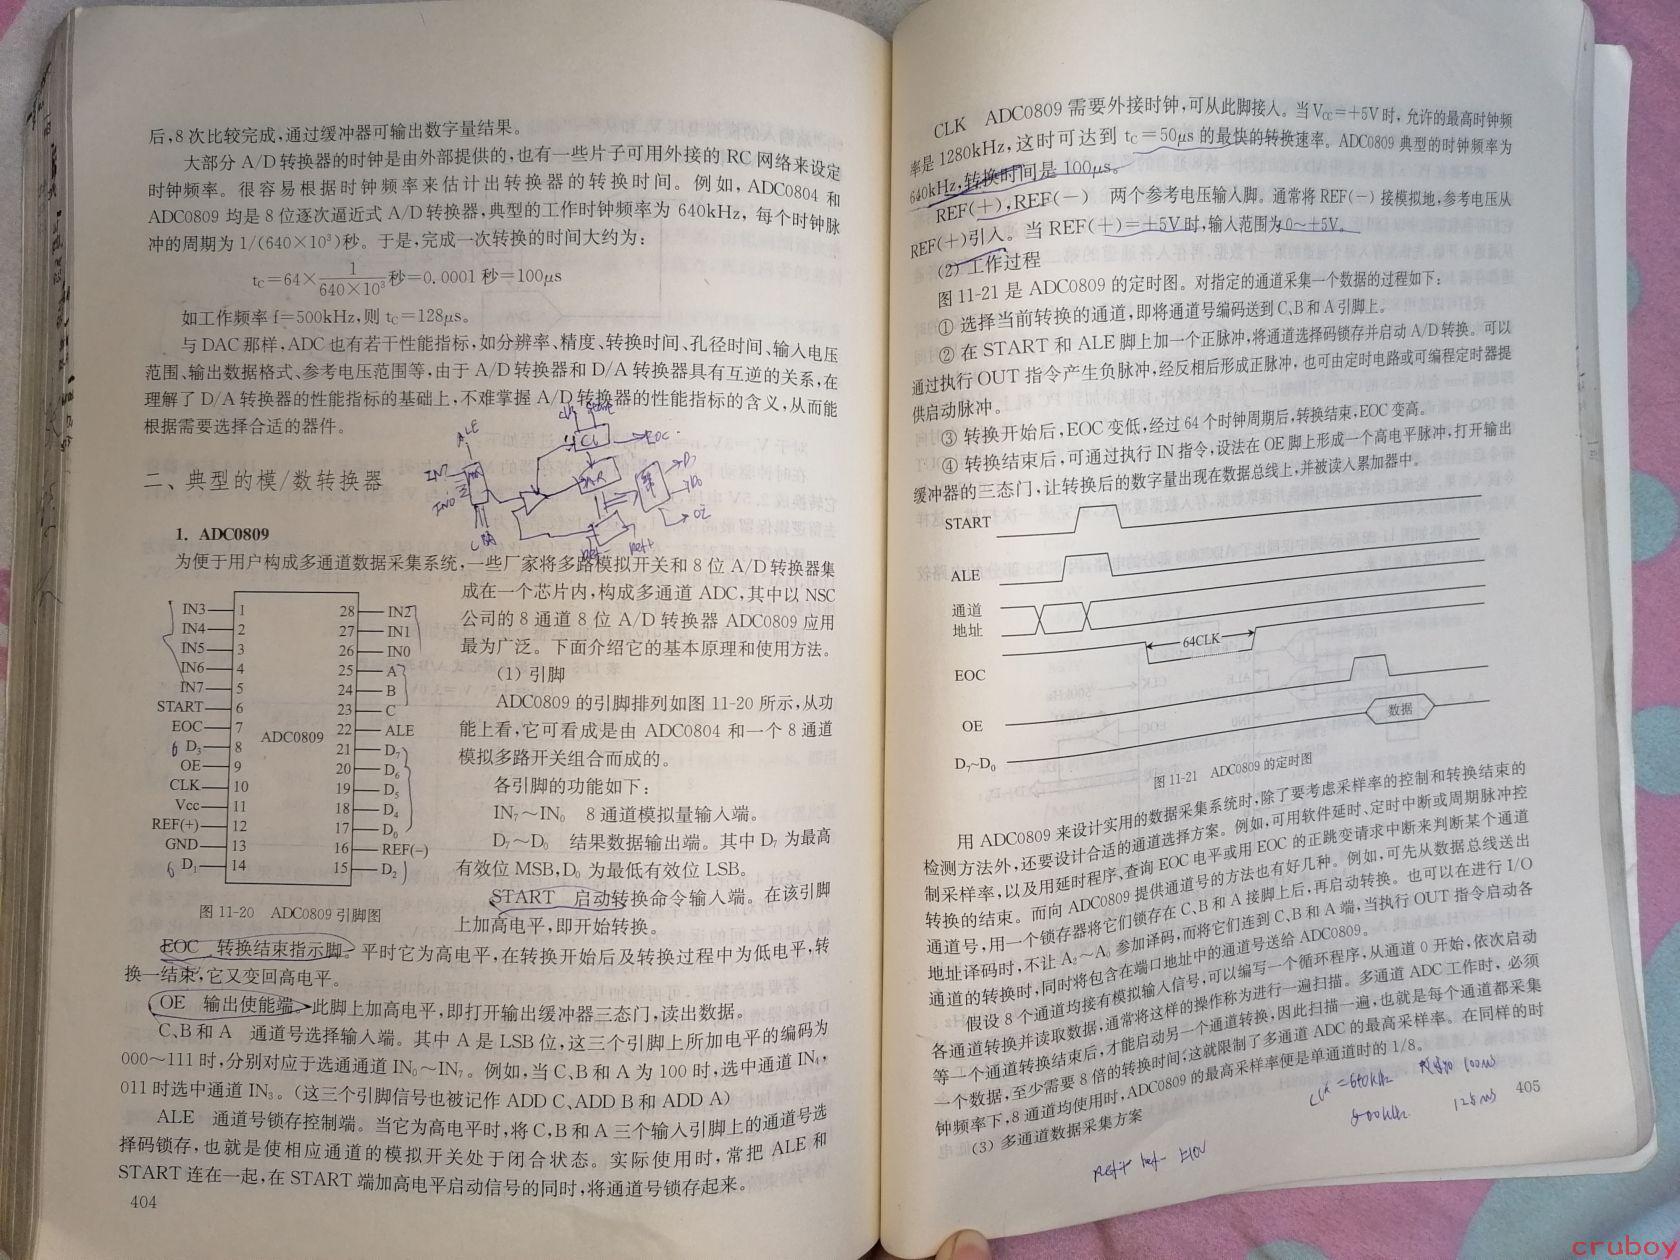 后,8次比较完成,通过缓冲器可输出数字量结果。
大部分A/D转换器的时钟是由外部提供的,也有一些片子可用外接的RC网络来设定
时钟频率。很容易根据时钟频率来估计出转换器的转换时间。例如,ADC0804和
ADC0809均是8位逐次逼近式A/D转换器,典型的工作时钟频率为640kHz,每个时钟脉
冲的周期为1/(640×10³)秒。于是,完成一次转换的时间大约为:
tc=64×1/640×10³秒=0.0001秒=100μs
如工作频率f=500kHz,则tc=128μs。
与DAC那样,ADC也有若干性能指标,如分辨率、精度、转换时间、孔径时间、输入电压
范围、输出数据格式、参考电压范围等,由于A/D转换器和D/A转换器具有互逆的关系,在
理解了D/A转换器的性能指标的基础上,不难掌握A/D转换器的性能指标的含义,从而能
根据需要选择合适的器件。
ALE
EOC
IN7
IN0
OE
ref+
二、典型的模/数转换器
1. ADC0809
为便于用户构成多通道数据采集系统,一些厂家将多路模拟开关和8位A/D转换器集
成在一个芯片内,构成多通道ADC,其中以NSC
公司的8通道8位A/D转换器ADC0809应用
最为广泛。下面介绍它的基本原理和使用方法。
(1) 引脚
ADC0809的引脚排列如图11-20所示,从功
能上看,它可看成是由ADC0804和一个8通道
模拟多路开关组合而成的。
各引脚的功能如下:
IN₇~IN₀ 8通道模拟量输入端。
D₇~D₀ 结果数据输出端。其中D₇为最高
有效位MSB,D₀为最低有效位LSB。
START 启动转换命令输入端。在该引脚
上加高电平,即开始转换。
IN3 1 28 IN2
IN4 2 27 IN1
IN5 3 26 IN0
IN6 4 25 A
IN7 5 24 B
START 6 23 C
EOC 7 22 ALE
D₃ 8 21 D₇
OE 9 20 D₆
CLK 10 19 D₅
Vcc 11 18 D₄
REF(+) 12 17 D₀
GND 13 16 REF(−)
D₁ 14 15 D₂
ADC0809
图11-20 ADC0809引脚图
EOC 转换结束指示脚。平时它为高电平,在转换开始后及转换过程中为低电平,转
换一结束,它又变回高电平。
OE 输出使能端。此脚上加高电平,即打开输出缓冲器三态门,读出数据。
C、B和A 通道号选择输入端。其中A是LSB位,这三个引脚上所加电平的编码为
000~111时,分别对应于选通通道IN₀~IN₇。例如,当C、B和A为100时,选中通道IN₄,
011时选中通道IN₃。(这三个引脚信号也被记作ADD C、ADD B和ADD A)
ALE 通道号锁存控制端。当它为高电平时,将C,B和A三个输入引脚上的通道号选
择码锁存,也就是使相应通道的模拟开关处于闭合状态。实际使用时,常把ALE和
START连在一起,在START端加高电平启动信号的同时,将通道号锁存起来。
404
CLK ADC0809需要外接时钟,可从此脚接入。当Vcc=+5V时,允许的最高时钟频
率是1280kHz,这时可达到tc=50μs的最快的转换速率。ADC0809典型的时钟频率为
640kHz,转换时间是100μs。
REF(+),REF(−) 两个参考电压输入脚。通常将REF(−)接模拟地,参考电压从
REF(+)引入。当REF(+)=+5V时,输入范围为0~+5V。
(2) 工作过程
图11-21是ADC0809的定时图。对指定的通道采集一个数据的过程如下:
① 选择当前转换的通道,即将通道号编码送到C、B和A引脚上。
② 在START和ALE脚上加一个正脉冲,将通道选择码锁存并启动A/D转换。可以
通过执行OUT指令产生负脉冲,经反相后形成正脉冲,也可由定时电路或可编程定时器提
供启动脉冲。
③ 转换开始后,EOC变低,经过64个时钟周期后,转换结束,EOC变高。
④ 转换结束后,可通过执行IN指令,设法在OE脚上形成一个高电平脉冲,打开输出
缓冲器的三态门,让转换后的数字量出现在数据总线上,并被读入累加器中。
START
ALE
通道
地址
64CLK
EOC
OE
数据
D₇~D₀
图11-21 ADC0809的定时图
用ADC0809来设计实用的数据采集系统时,除了要考虑采样率的控制和转换结束的
检测方法外,还要设计合适的通道选择方案。例如,可用软件延时、定时中断或周期脉冲控
制采样率,以及用延时程序、查询EOC电平或用EOC的正跳变请求中断来判断某个通道
转换的结束。而向ADC0809提供通道号的方法也有好几种。例如,可先从数据总线送出
通道号,用一个锁存器将它们锁存在C、B和A接脚上后,再启动转换。也可以在进行I/O
地址译码时,不让A₂~A₀参加译码,而将它们连到C、B和A端,当执行OUT指令启动各
通道的转换时,同时将包含在端口地址中的通道号送给ADC0809。
假设8个通道均接有模拟输入信号,可以编写一个循环程序,从通道0开始,依次启动
各通道转换并读取数据,通常将这样的操作称为进行一遍扫描。多通道ADC工作时,必须
等一个通道转换结束后,才能启动另一个通道转换,因此扫描一遍,也就是每个通道都采集
一个数据,至少需要8倍的转换时间;这就限制了多通道ADC的最高采样率。在同样的时
钟频率下,8通道均使用时,ADC0809的最高采样率便是单通道时的1/8。
(3) 多通道数据采集方案
clk=640kHz 100us
500kHz 128us
405
cruboy